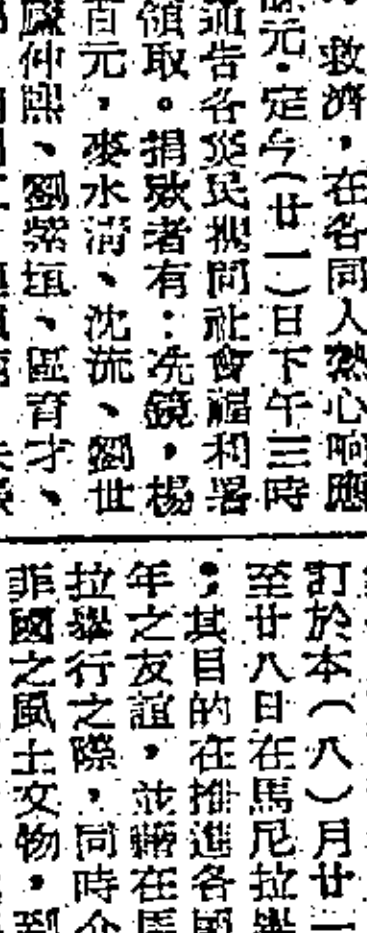 救濟，在各同人熱心响應
元。定今（廿一）日下午三時
通告各災民携同社會福利署
領取。捐欵者有：冼鏡，楊
百元，麥水淸、沈流、劉世
仲熙、劉紫垣、區育才、
訂於本（八）月廿一
至廿八日在馬尼拉舉
；其目的在推進各國
年之友誼，並藉在馬
拉舉行之際，同時介
菲國之風土文物，到